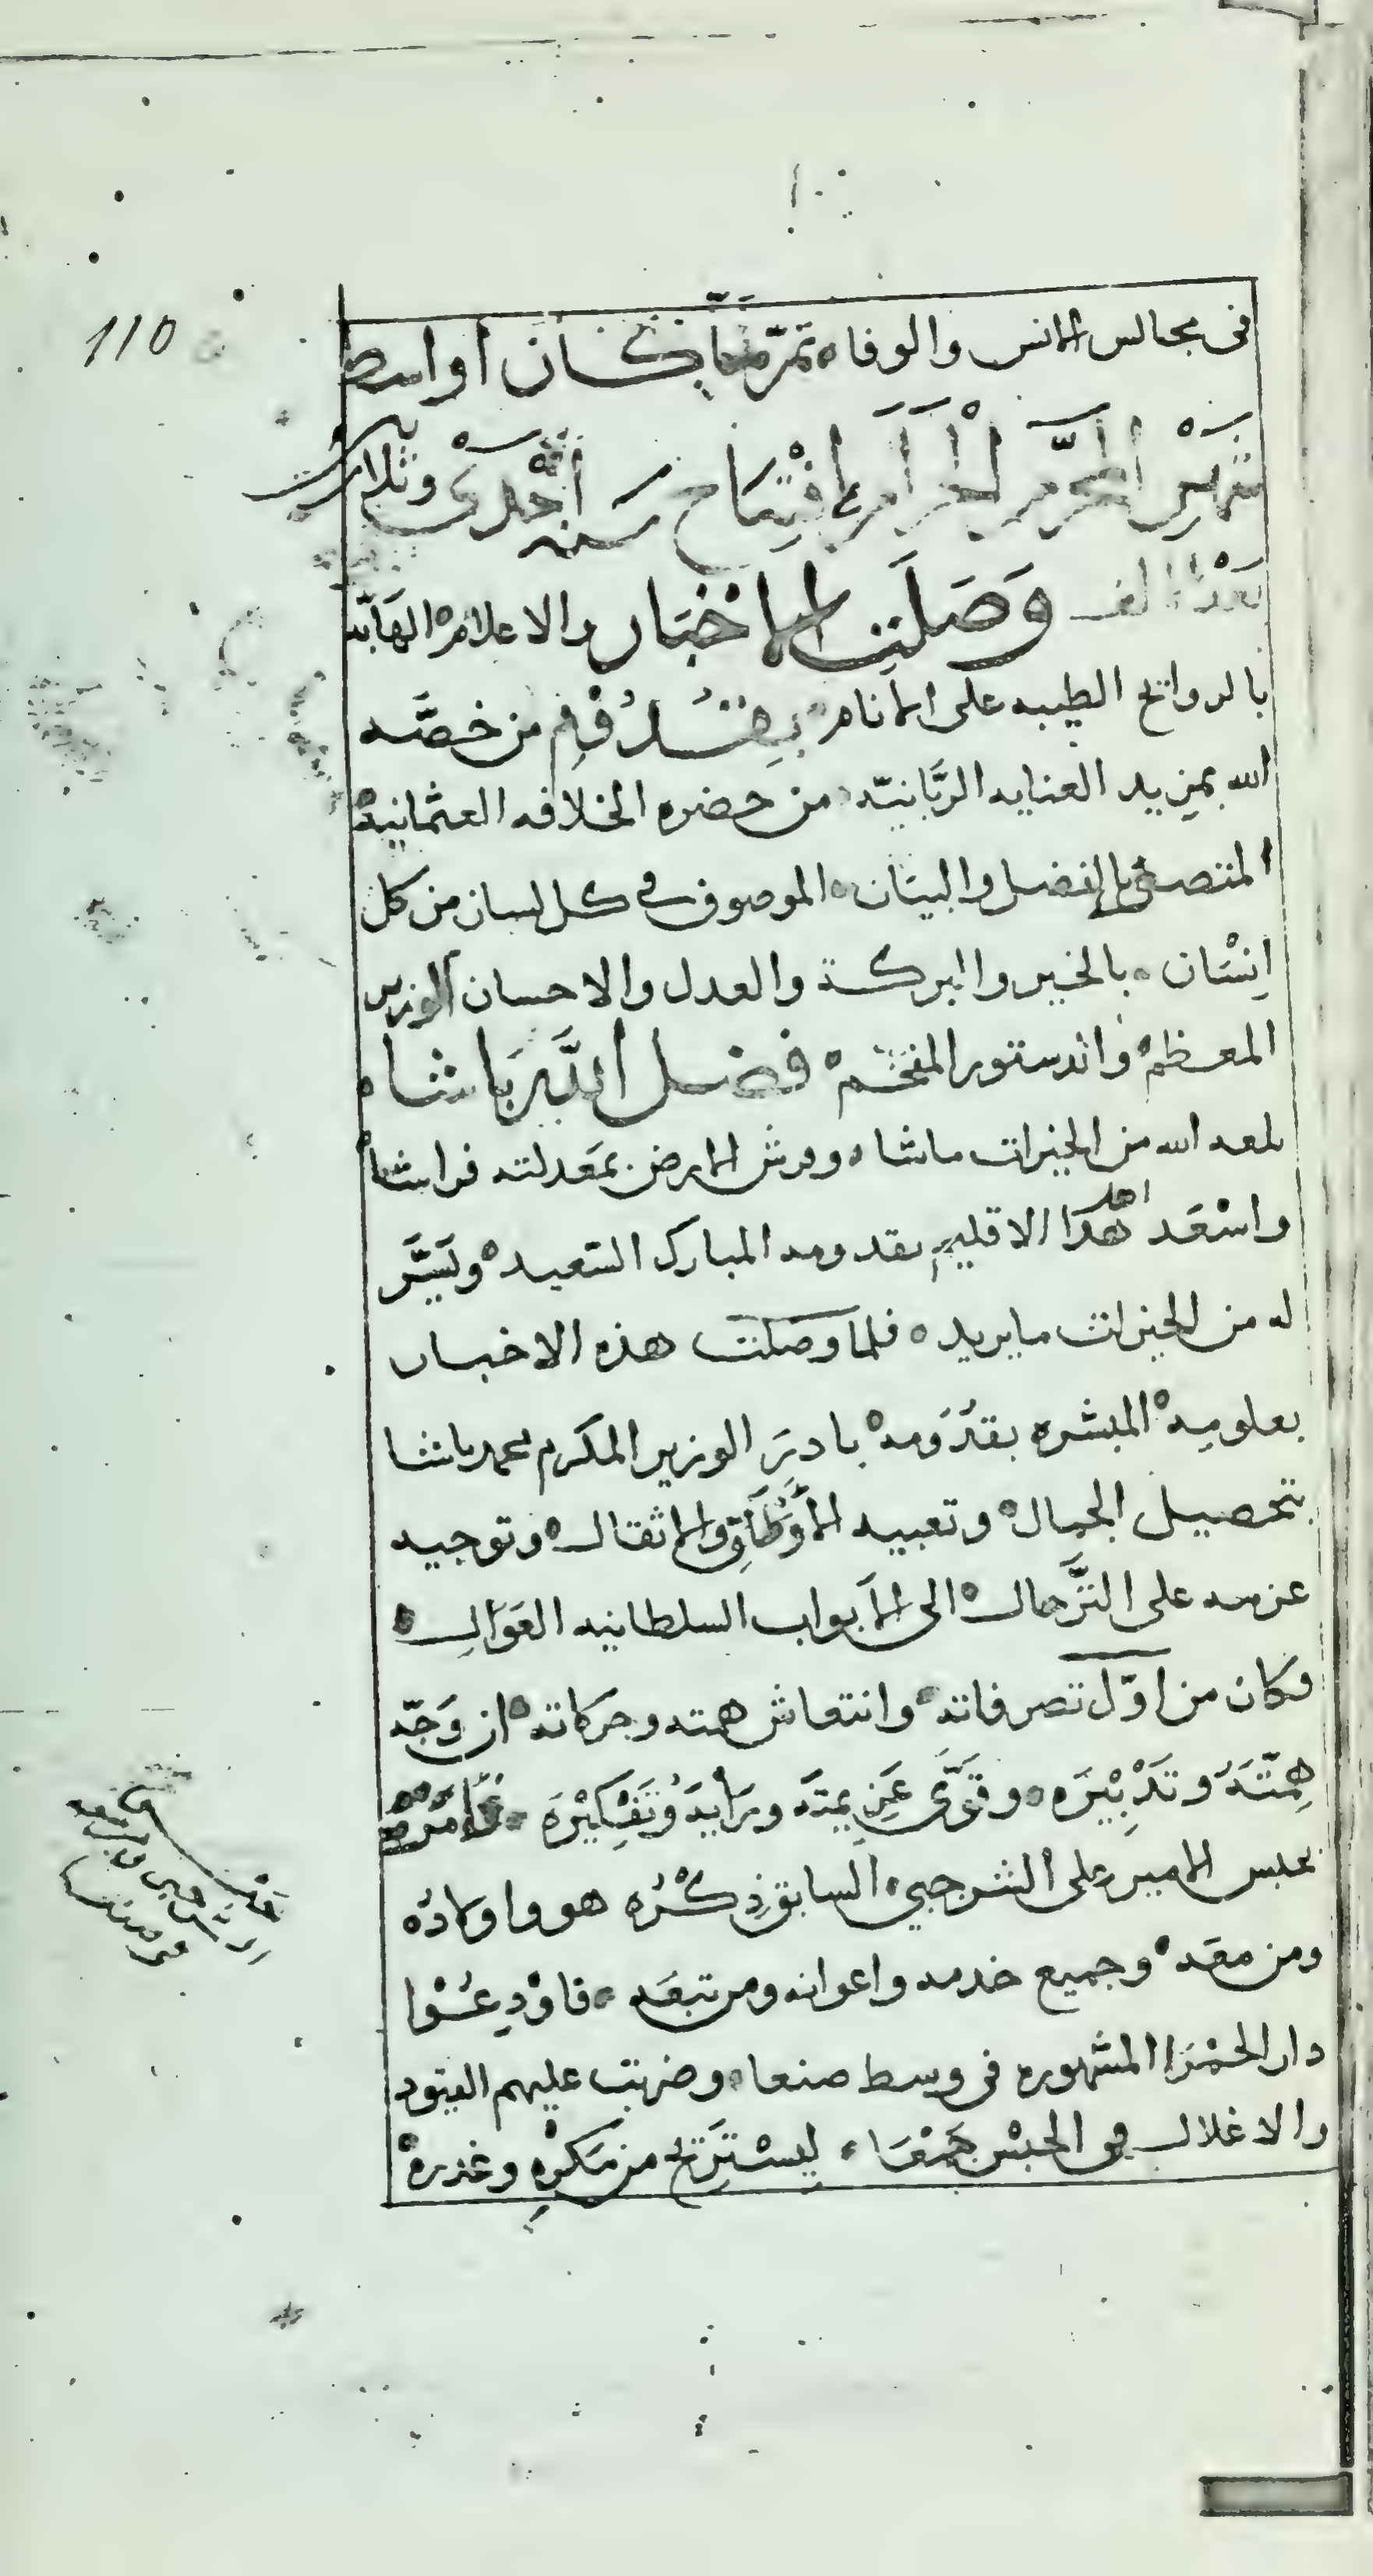 110
في مجالس الانس والوفاء ثمّ لما كان أواسط
شهر المحرّم الحرام افتتاح سنه أحدى وثلاثين
بعد الالف وَصَلَت الاخبَار والاعلام الهَابّه
بالروائح الطيبه على الانام بقدُوم من خصَّه
الله بمزيد العنايه الربَّانيّه من حضره الخلافه العثمانيه
المتصف بالفضل والبيَان الموصوف في كل لسان من كل
انسَان بالخير والبركة والعدل والاحسان الوزير
المعظم والدستور المفخم فضل الله باشاه
بلغه الله من الخيرات ماشاء وفرش الارض بمَعدلته فراشا
واسْعَد اهل هذا الاقليم بقدومه المبارك السَّعيد ويَسَّر
له من الخيرات مايريد فلما وصَلَت هذه الاخبار
بعلومه المبشره بقدُومه بادرَ الوزير المكرم محمد باشا
بتحصيل الجمال وتعبيه الأوطَاق والاثقال وتوجيه
عزمه على التَّرحال الى الأبواب السلطانيه العَوَال
فكان من اوّل تصرفاته وانتعاش همته وحركاته ان وَجّه
هِمّتَهُ وتَدْبِيْرَه وقوَّى عَزِيمتَه ورَأيَه وتَفكِيْرَه
بحبس الامير على الشرجبي السابق ذِكْرُه هو واولادُه
ومن معَه وجميع خدمه واعوانه ومن تبعَه فاوْدِعُوا
دار الحمْرَا المشهوره في وسط صنعاء وضربت عليهم القيود
والاغلال في الحبْس جمْعَا ليسْتَرِيح من مَكْرِهِ وغدره